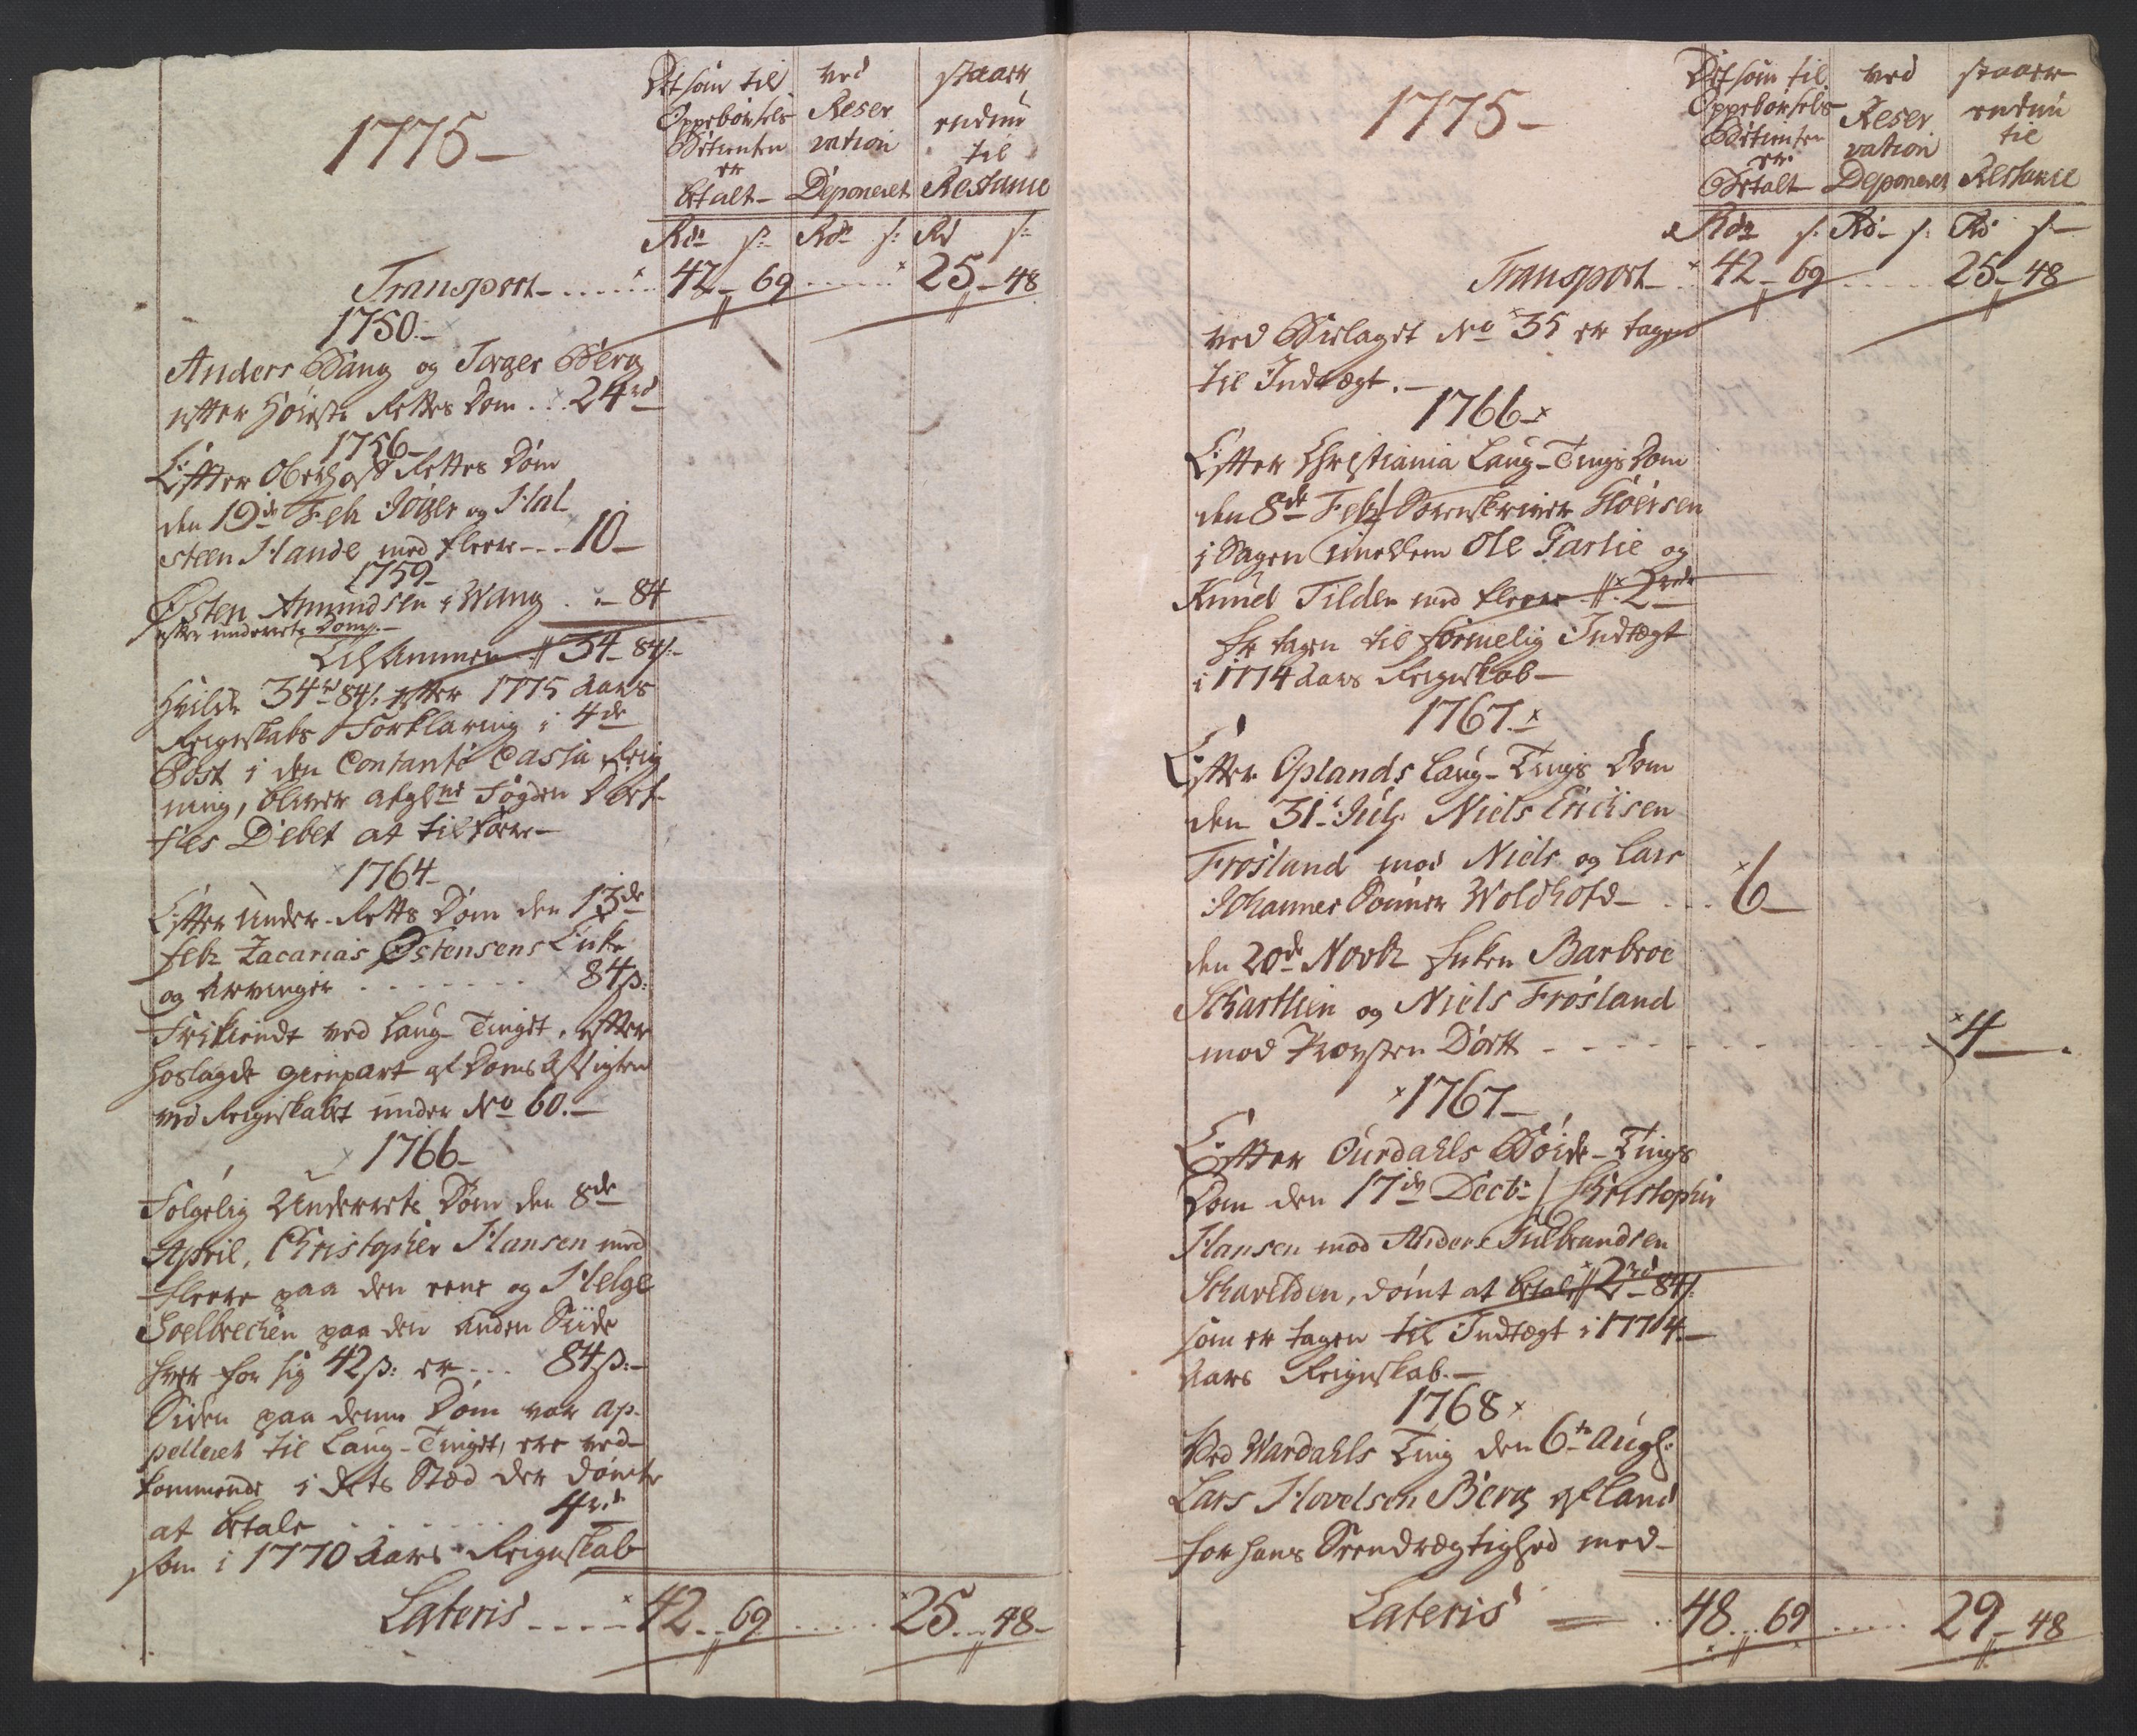 1775-
Det som til
Oppebørsels
Betienten
er
betalt-
ved
Reser
vation
Deponeret
staaer
endnu
til
Restance
Rdr s: Rdr s: Rd s:
Transport - - - - - 42 - 69 - - - - - 25 - 48
1750.-
Anders Bang og Torger Berg
efter Høieste Rettes Dom . . 24 rd
1756-
Efter Oberhof Rettes Dom
den 19de Febr Jøger og Hal
steen Hande med fleere - - - 10-
1759-
Østen Amundsen i Wang . - 84
efter underrets Dom.-
Tilsammen 34 - 84s.-
Hvilke 34rd 84s. efter 1775 Aars
Reigenskabs Forklaring i 4de
Post i den Contante Cassa Reig
ning, bliver afgl:ne Fogden
Debet at tilføre-
1764-
Efter Under-Retts Dom den 13de
Febr Zacarias Østensens Enke
og Arvinger - - - - - - - 84s:
Frikiendt ved Laug-Tinget, efter
hoslagde Gienpart af Doms Acten
ved Reigenskabet under No 60.-
1766-
Følgelig Underrets Dom den 8de
April, Christopher Hansen med
fleere paa den eene og Helge
Hoelbrechen paa den Anden Siide
hver for sig 42s: er - - - 84s:-
Siden paa denne Dom var ap-
pelleret til Laug-Tinget, ere ved-
kommende i dets Sted der dømte
at betale - - - - - - 4rd
som i 1770 Aars Reigenskab
Lateris - - - - 42 - - 69 - - - - - 25 - - 48-
1775-
Det som til
Oppebørsels
Betienten
er
Betalt-
ved
Reser
vation
Deponeret
staaer
endnu
til
Restance
Rdr s: Rd- s: Rd s-
Transport - - 42 - 69 - - - - - 25 - 48
ved Bielaget No 35 er tagen
til Indtægt.-
1766-
Efter Christiania Laug-Tings Dom
den 8de Febr Sorenskriver Kløersen
i Sagen imellem Ole Garlie og
Knud Tilden med fleere 2rd
Er tagen til formelig Indtægt
i 1774 Aars Reigenskab-
1767-
Efter Oplands Laug-Tings Dom
den 31te July Niels Erichsen
Frøsland mod Niels og Lars
Johannes Sønner Woldhold - - - 6-
den 20de Novbr Enken Barbroe
Scharthien og Niels Frøsland
mod Torsten Dortt - - - - - - - - - - 4-
1767-
Efter Ourdahls Bøide-Tings
Dom den 17de Decbr Christopher
Hansen mod Anders Gulbrandsen
Scharelden, dømt at betale 2rd-84s:
som er tagen til Indtægt i 1774-
Aars Reigenskab.-
1768
Ved Wardahls Ting den 6te Aug:
Lars Hovelsen Berg af Land
for hans Trendrægtighed med-
Lateris - - 48 - - 69 - - - - - 29 - 48